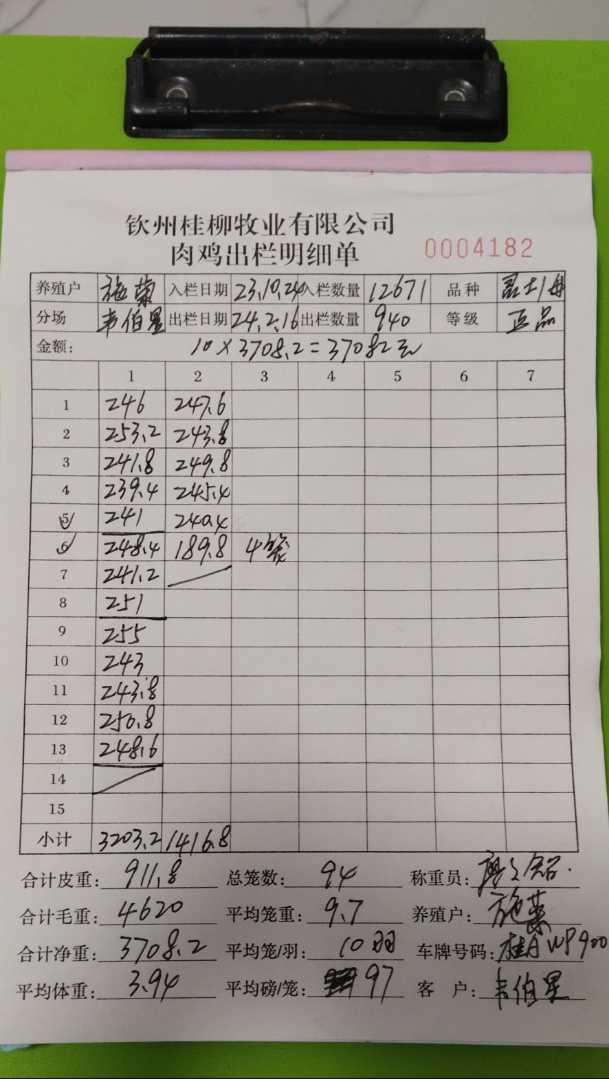 钦州桂柳牧业有限公司
肉鸡出栏明细单 0004182
养殖户 施 入栏日期 23.10.24 入栏数量 12671 品种
分场 韦伯星 出栏日期 24.2.16 出栏数量 940 等级 正品
金额: 10×3708.2=37082元
1 2 3 4 5 6 7
1 246 247.6
2 253.2 243.8
3 241.8 249.8
4 239.4 245.4
5 241 240.4
6 248.4 189.8 4笼
7 241.2
8 251
9 255
10 243
11 243.8
12 250.8
13 248.6
14
15
小计 3203.2 1416.8
合计皮重: 911.8 总笼数: 94 称重员:
合计毛重: 4620 平均笼重: 9.7 养殖户: 施
合计净重: 3708.2 平均笼/羽: 10羽 车牌号码: 桂A WP900
平均体重: 3.94 平均磅/笼: 97 客 户: 韦伯星